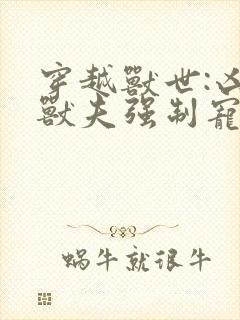 穿越獸世:凶
獸夫强制寵
蝸牛就很牛